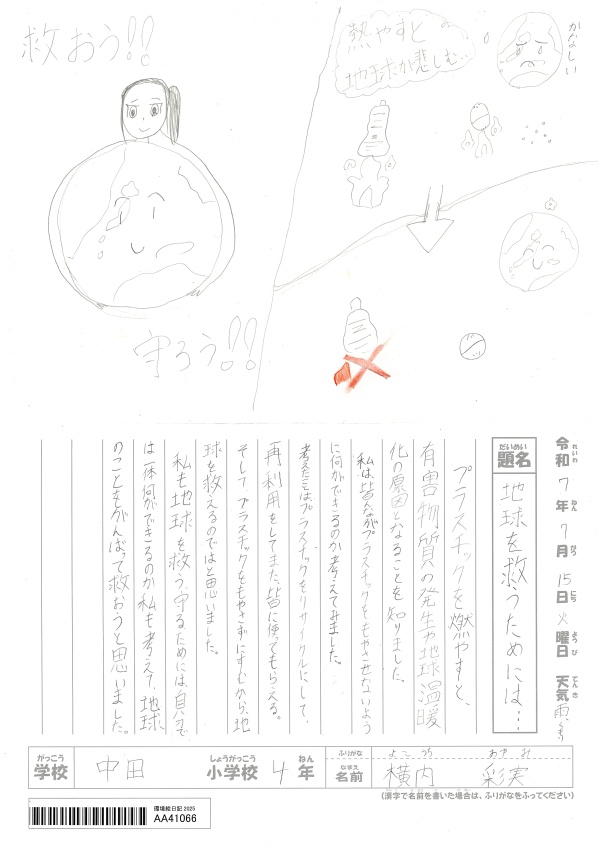 救おう!!
守ろう!!
熱やすと
地球が悲しむ…
かなしい
令和7年7月15日火曜日 天気雨、くもり
れいわ ねん がつ にち ようび てんき
だいめい
題名
地球を救うためには…
プラスチックを燃やすと、
有害物質の発生や地球温暖
化の原因となることを知りました。
私は皆ながプラスチックをもやさせないよう
に何ができるのか考えてみました。
考えたことはプラスチックをリサイクルにして、
再利用をしてまた、皆に使ってもらえる。
そしてプラスチックをもやさずにすむから、地
球を救えるのではと思いました。
私も地球を救う、守るためには、自分で
は一体何ができるのか私も考えて、地球
のこともがんばって救おうと思いました。
がっこう
学校
中田
しょうがっこう
小学校
4
ねん
年
ふりがな
よこ うち あや み
なまえ
名前
横内 彩実
(漢字で名前を書いた場合は、ふりがなをふってください)
環境絵日記 2025
AA41066